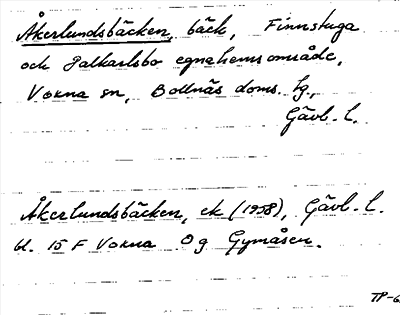 Åkerlundsbäcken, bäck, Finnstuga
och Jalkarlsbo egnahemsområde,
Voxna sn, Bollnäs doms. hg.,
Gävl. l.
Åkerlundsbäcken, ek (1958), Gävl. l.
bl. 15 F Voxna 0 g Gymåsen.
TP-6